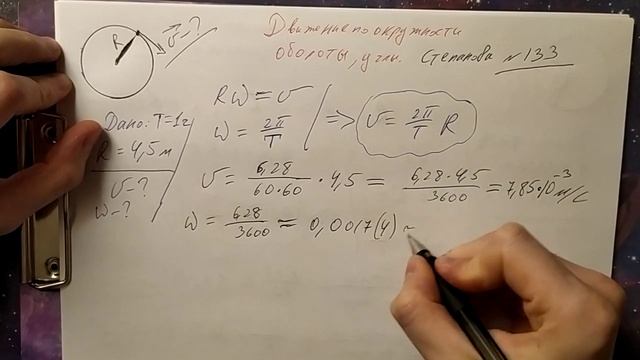 Движение по окружности
обороты, углы. Степанова №133
R
v⃗-?
Дано: T=1ч
R = 4,5м
v-?
ω-?
Rω = v
ω = 2π/T
=> v = 2π/T R
v = 6,28/60·60 · 4,5 = 6,28·4,5/3600 = 7,85·10⁻³ м/с
ω = 628/3600 ≈ 0,0017(4) ~